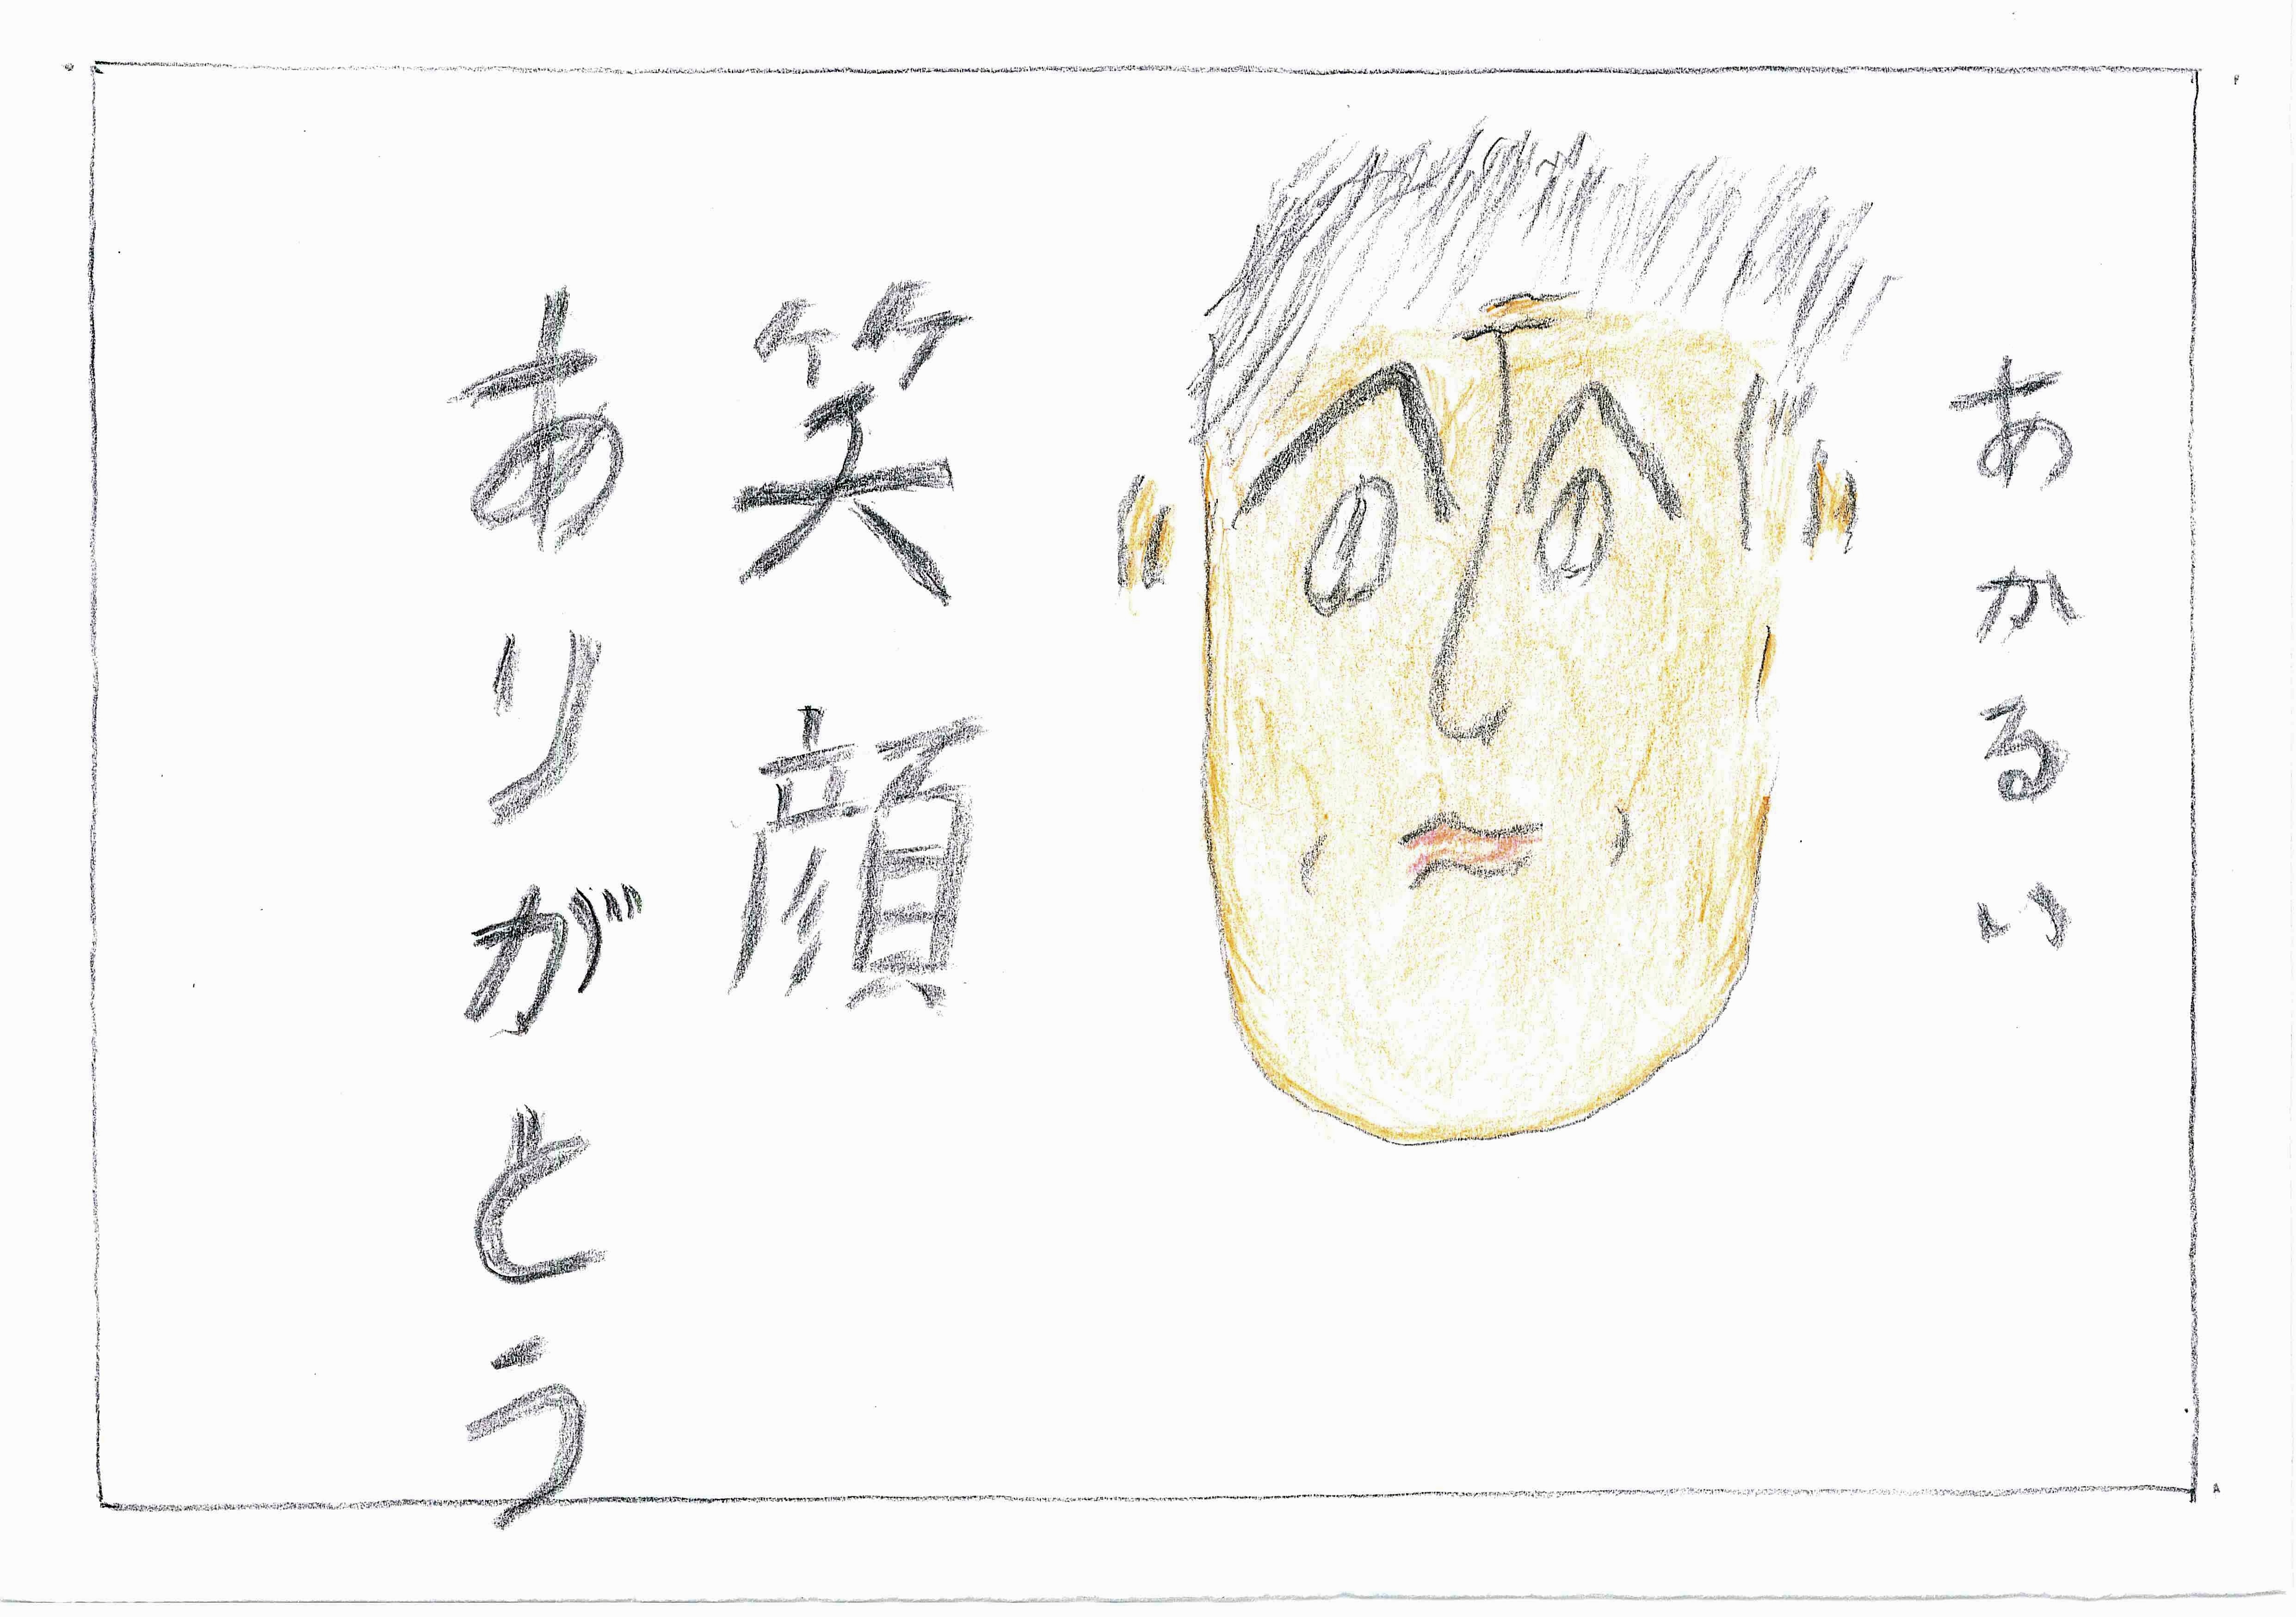 あかるい
笑顔
ありがとう